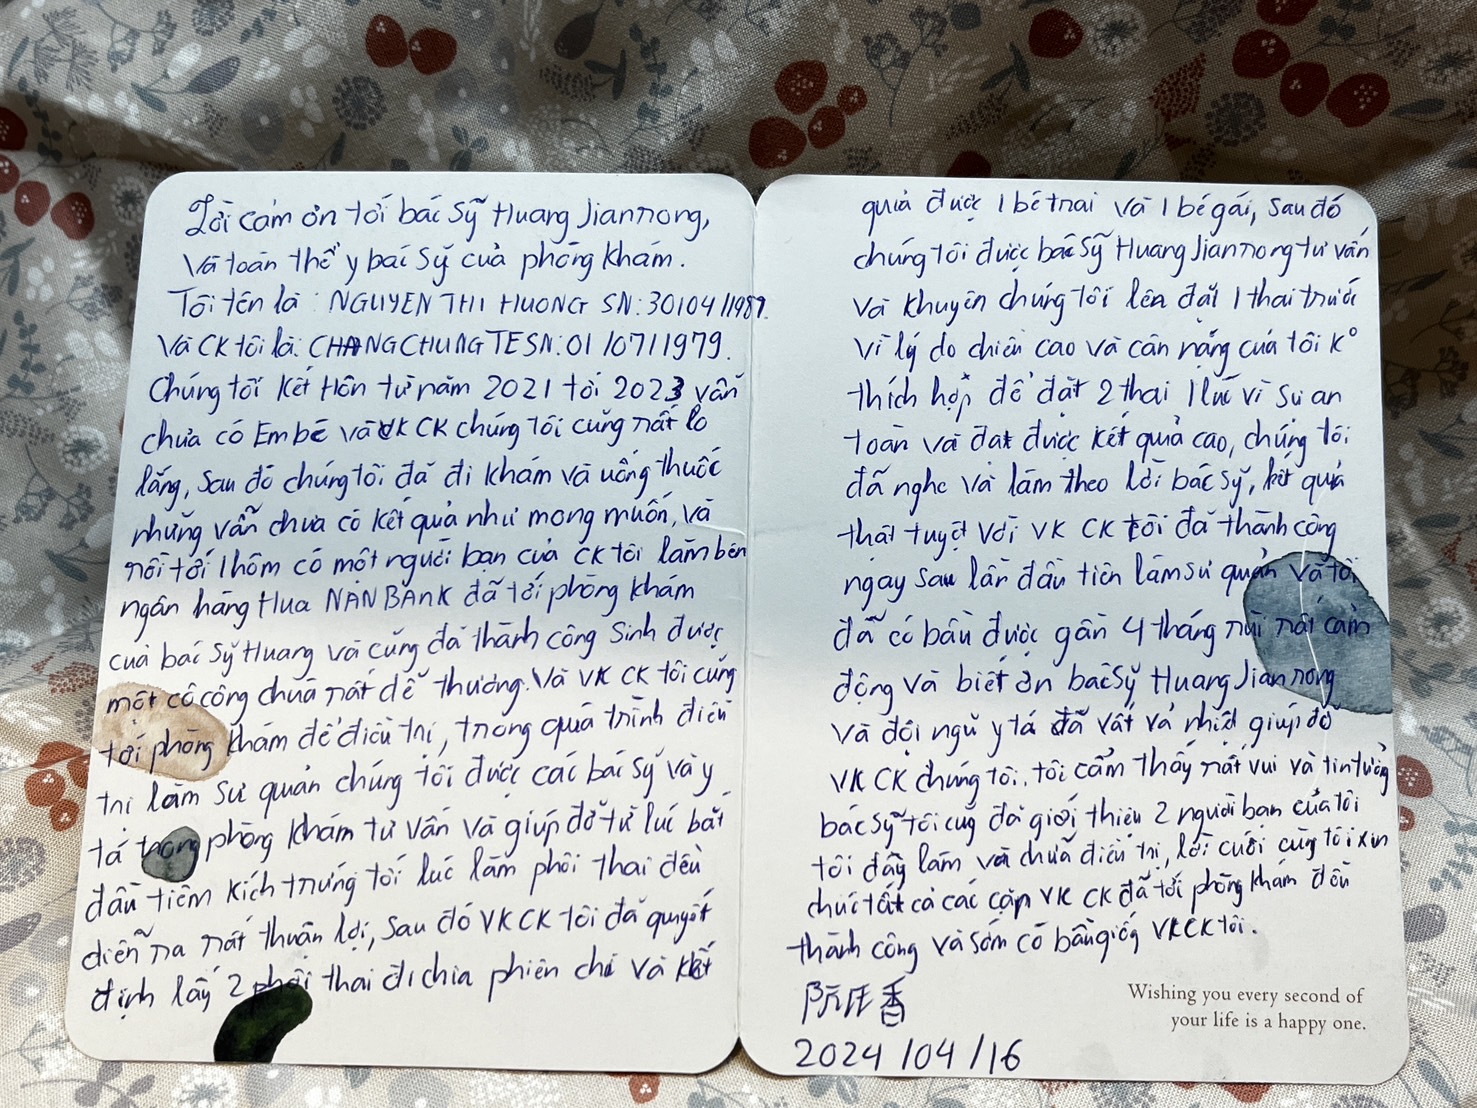 Lời cảm ơn tới bác sỹ Huang Jianrong,
Và toàn thể y bác sỹ của phòng khám.
Tôi tên là: NGUYEN THI HUONG SN: 30/04/1987.
Và CK tôi là: CHANG CHUNG TE SN: 01/07/1979.
Chúng tôi kết hôn từ năm 2021 tới 2023 vẫn
chưa có Em bé và VK CK chúng tôi cũng rất lo
lắng, sau đó chúng tôi đã đi khám và uống thuốc
nhưng vẫn chưa có kết quả như mong muốn, và
rồi tới 1 hôm có một người bạn của CK tôi làm bên
ngân hàng Hua NAN BANK đã tới phòng khám
của bác sỹ Huang và cũng đã thành công sinh được
một cô công chúa rất dễ thương. Và VK CK tôi cũng
tới phòng khám để điều trị, trong quá trình điều
trị làm sư quản chúng tôi được các bác sỹ và y
tá trong phòng khám tư vấn và giúp đỡ từ lúc bắt
đầu tiêm kích trứng tới lúc làm phôi thai đều
diễn ra rất thuận lợi, sau đó VK CK tôi đã quyết
định lấy 2 phôi thai đi chia phiên chi và kết
quả được 1 bé trai và 1 bé gái, sau đó
chúng tôi được bác sỹ Huang Jianrong tư vấn
và khuyên chúng tôi lên đặt 1 thai trước
vì lý do chiều cao và cân nặng của tôi K°
thích hợp để đặt 2 thai 1 lúc vì sự an
toàn và đạt được kết quả cao, chúng tôi
đã nghe và làm theo lời bác sỹ, kết quả
thật tuyệt vời VK CK tôi đã thành công
ngay sau lần đầu tiên làm sư quản và tôi
đã có bầu được gần 4 tháng rồi rất cảm
động và biết ơn bác sỹ Huang Jianrong
và đội ngũ y tá đã vất vả nhiệt giúp đỡ
VK CK chúng tôi. tôi cảm thấy rất vui và tin tưởng
bác sỹ tôi cũg đã giới thiệu 2 người bạn của tôi
tới đây làm và chữa điều trị, lời cuối cùng tôi xin
chúc tất cả các cặp VK CK đã tới phòng khám đều
thành công và sớm có bầu giống VK CK tôi.
阮氏香
2024/04/16
Wishing you every second of
your life is a happy one.